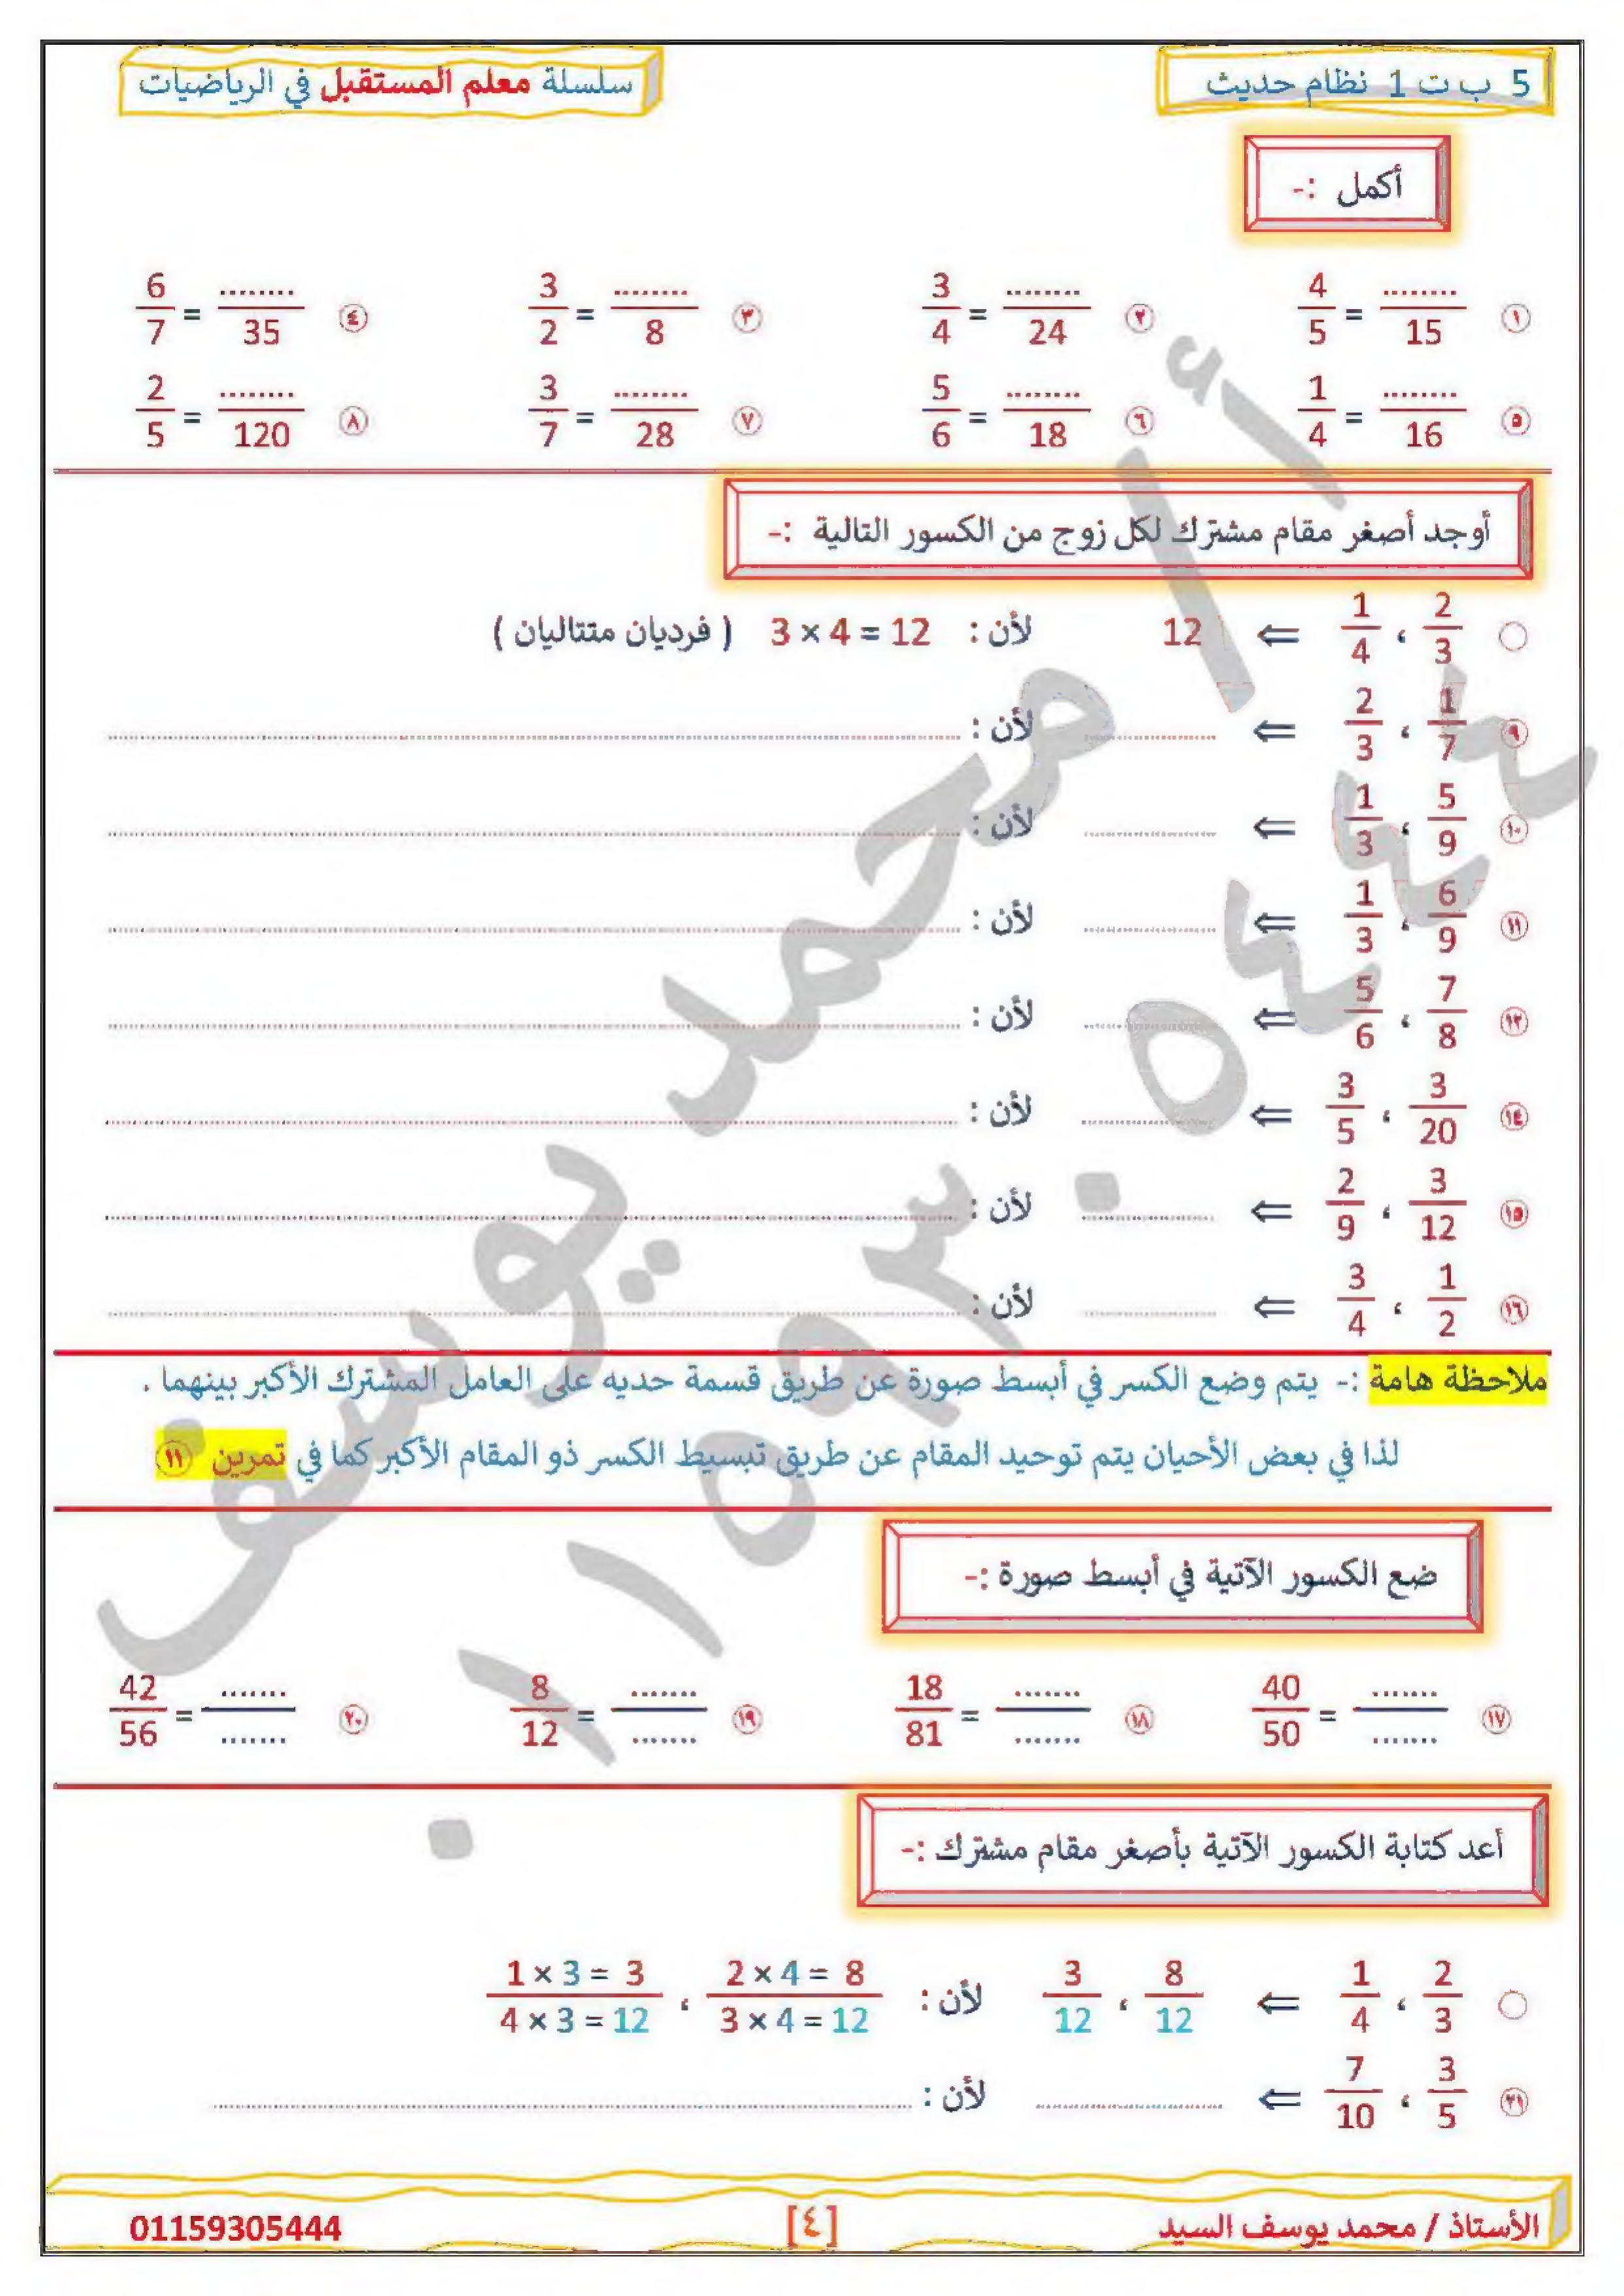 5 ب ت 1 نظام حديث
سلسلة معلم المستقبل في الرياضيات
أكمل :-
١ 4/5 = ......../15
٢ 3/4 = ......../24
٣ 3/2 = ......../8
٤ 6/7 = ......../35
٥ 1/4 = ......../16
٦ 5/6 = ......../18
٧ 3/7 = ......../28
٨ 2/5 = ......../120
أوجد أصغر مقام مشترك لكل زوج من الكسور التالية :-
2/3 ، 1/4 ⇐ 12 لأن : 3 × 4 = 12 ( فرديان متتاليان )
٩ 1/7 ، 2/3 ⇐ ........ لأن : ........
١٠ 5/9 ، 1/3 ⇐ ........ لأن : ........
١١ 6/9 ، 1/3 ⇐ ........ لأن : ........
١٣ 7/8 ، 5/6 ⇐ ........ لأن : ........
١٤ 3/20 ، 3/5 ⇐ ........ لأن : ........
١٥ 3/12 ، 2/9 ⇐ ........ لأن : ........
١٦ 1/2 ، 3/4 ⇐ ........ لأن : ........
ملاحظة هامة :- يتم وضع الكسر في أبسط صورة عن طريق قسمة حديه على العامل المشترك الأكبر بينهما .
لذا في بعض الأحيان يتم توحيد المقام عن طريق تبسيط الكسر ذو المقام الأكبر كما في تمرين ١١
ضع الكسور الآتية في أبسط صورة :-
١٧ 40/50 = ......./.......
١٨ 18/81 = ......./.......
١٩ 8/12 = ......./.......
٢٠ 42/56 = ......./.......
أعد كتابة الكسور الآتية بأصغر مقام مشترك :-
2/3 ، 1/4 ⇐ 8/12 ، 3/12 لأن : 2 × 4 = 8 / 3 × 4 = 12 ، 1 × 3 = 3 / 4 × 3 = 12
٢١ 3/5 ، 7/10 ⇐ ........ لأن : ........
الأستاذ / محمد يوسف السيد
[٤]
01159305444
أ / محمد يوسف
٠١١٥٩٣٠٥٤٤٤